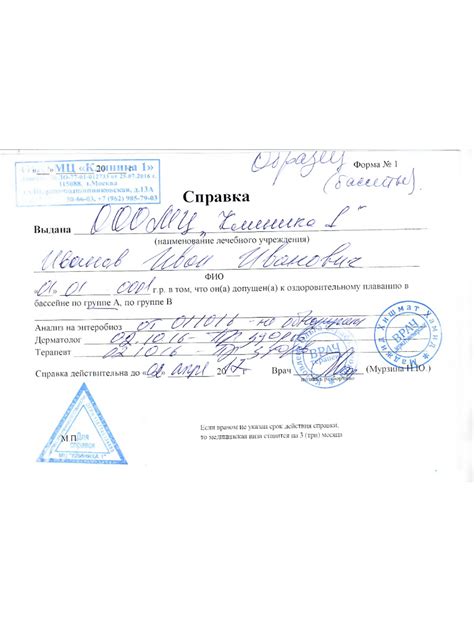 МЦ «Клиника 1»
115088 г.Москва
+7 (962) 985-79-03
Образец
Форма № 1
(бассейн)
Справка
Выдана ООО МЦ „Клиника 1"
(наименование лечебного учреждения)
Иванов Иван Иванович
ФИО
01 01 0001 г.р. в том, что он(а) допущен(а) к оздоровительному плаванию в
бассейне по группе А, по группе В
Анализ на энтеробиоз от 011016 - не обнаружен
Дерматолог 02.10.16 - пр. здоров
Терапевт 02.10.16 - пр. здоров
Справка действительна до «02» апр 2017г. Врач (Мурзина Н.Ю.)
подпись
ВРАЧ
ВРАЧ
Маджид Хишмат Хамид
Для справок
МЦ "КЛИНИКА 1"
М.П.
Если врачом не указан срок действия справки,
то медицинская виза ставится на 3 (три) месяца